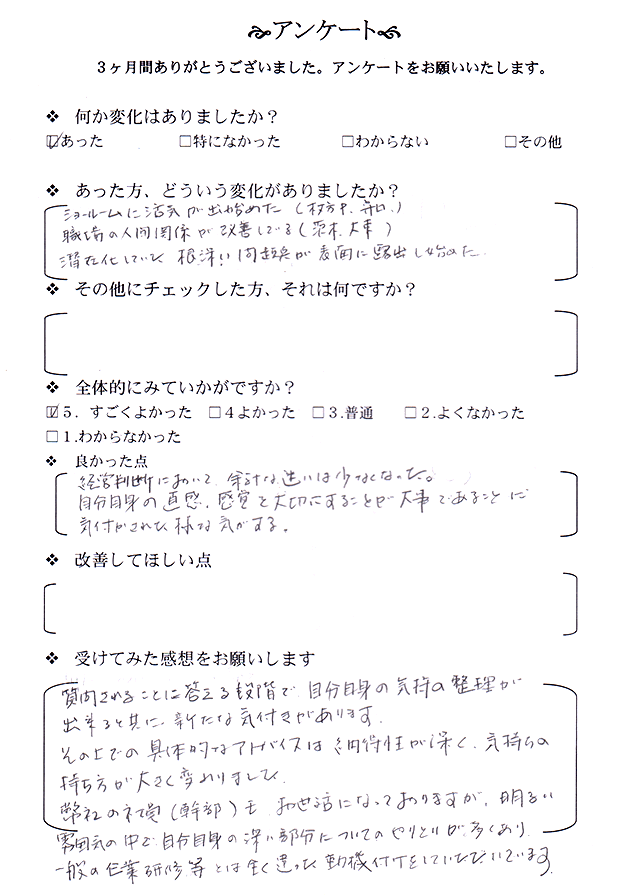 アンケート
3ヶ月間ありがとうございました。アンケートをお願いいたします。
❖ 何か変化はありましたか？
☑あった □特になかった □わからない □その他
❖ あった方、どういう変化がありましたか？
ショールームに活気が出始めた（枚方、守口）
職場の人間関係が改善している（茨木、大東）
潜在化していた根深い問題が表面に露出し始めた。
❖ その他にチェックした方、それは何ですか？
❖ 全体的にみていかがですか？
☑5．すごくよかった □4よかった □3.普通 □2.よくなかった
□1.わからなかった
❖ 良かった点
経営判断において、余計な迷いは少なくなった。
自分自身の直感、感覚を大切にすることが大事であることに
気付かされた様な気がする。
❖ 改善してほしい点
❖ 受けてみた感想をお願いします
質問されることに答える段階で、自分自身の気持の整理が
出来ると共に、新たな気付きがあります。
その上での具体的なアドバイスは納得性が深く、気持ちの
持ち方が大きく変わりました。
弊社の社員（幹部）もお世話になっておりますが、明るい
雰囲気の中で自分自身の深い部分についてのやりとりが多くあり、
一般の企業研修等とは全く違った動機付けをしていただいています。